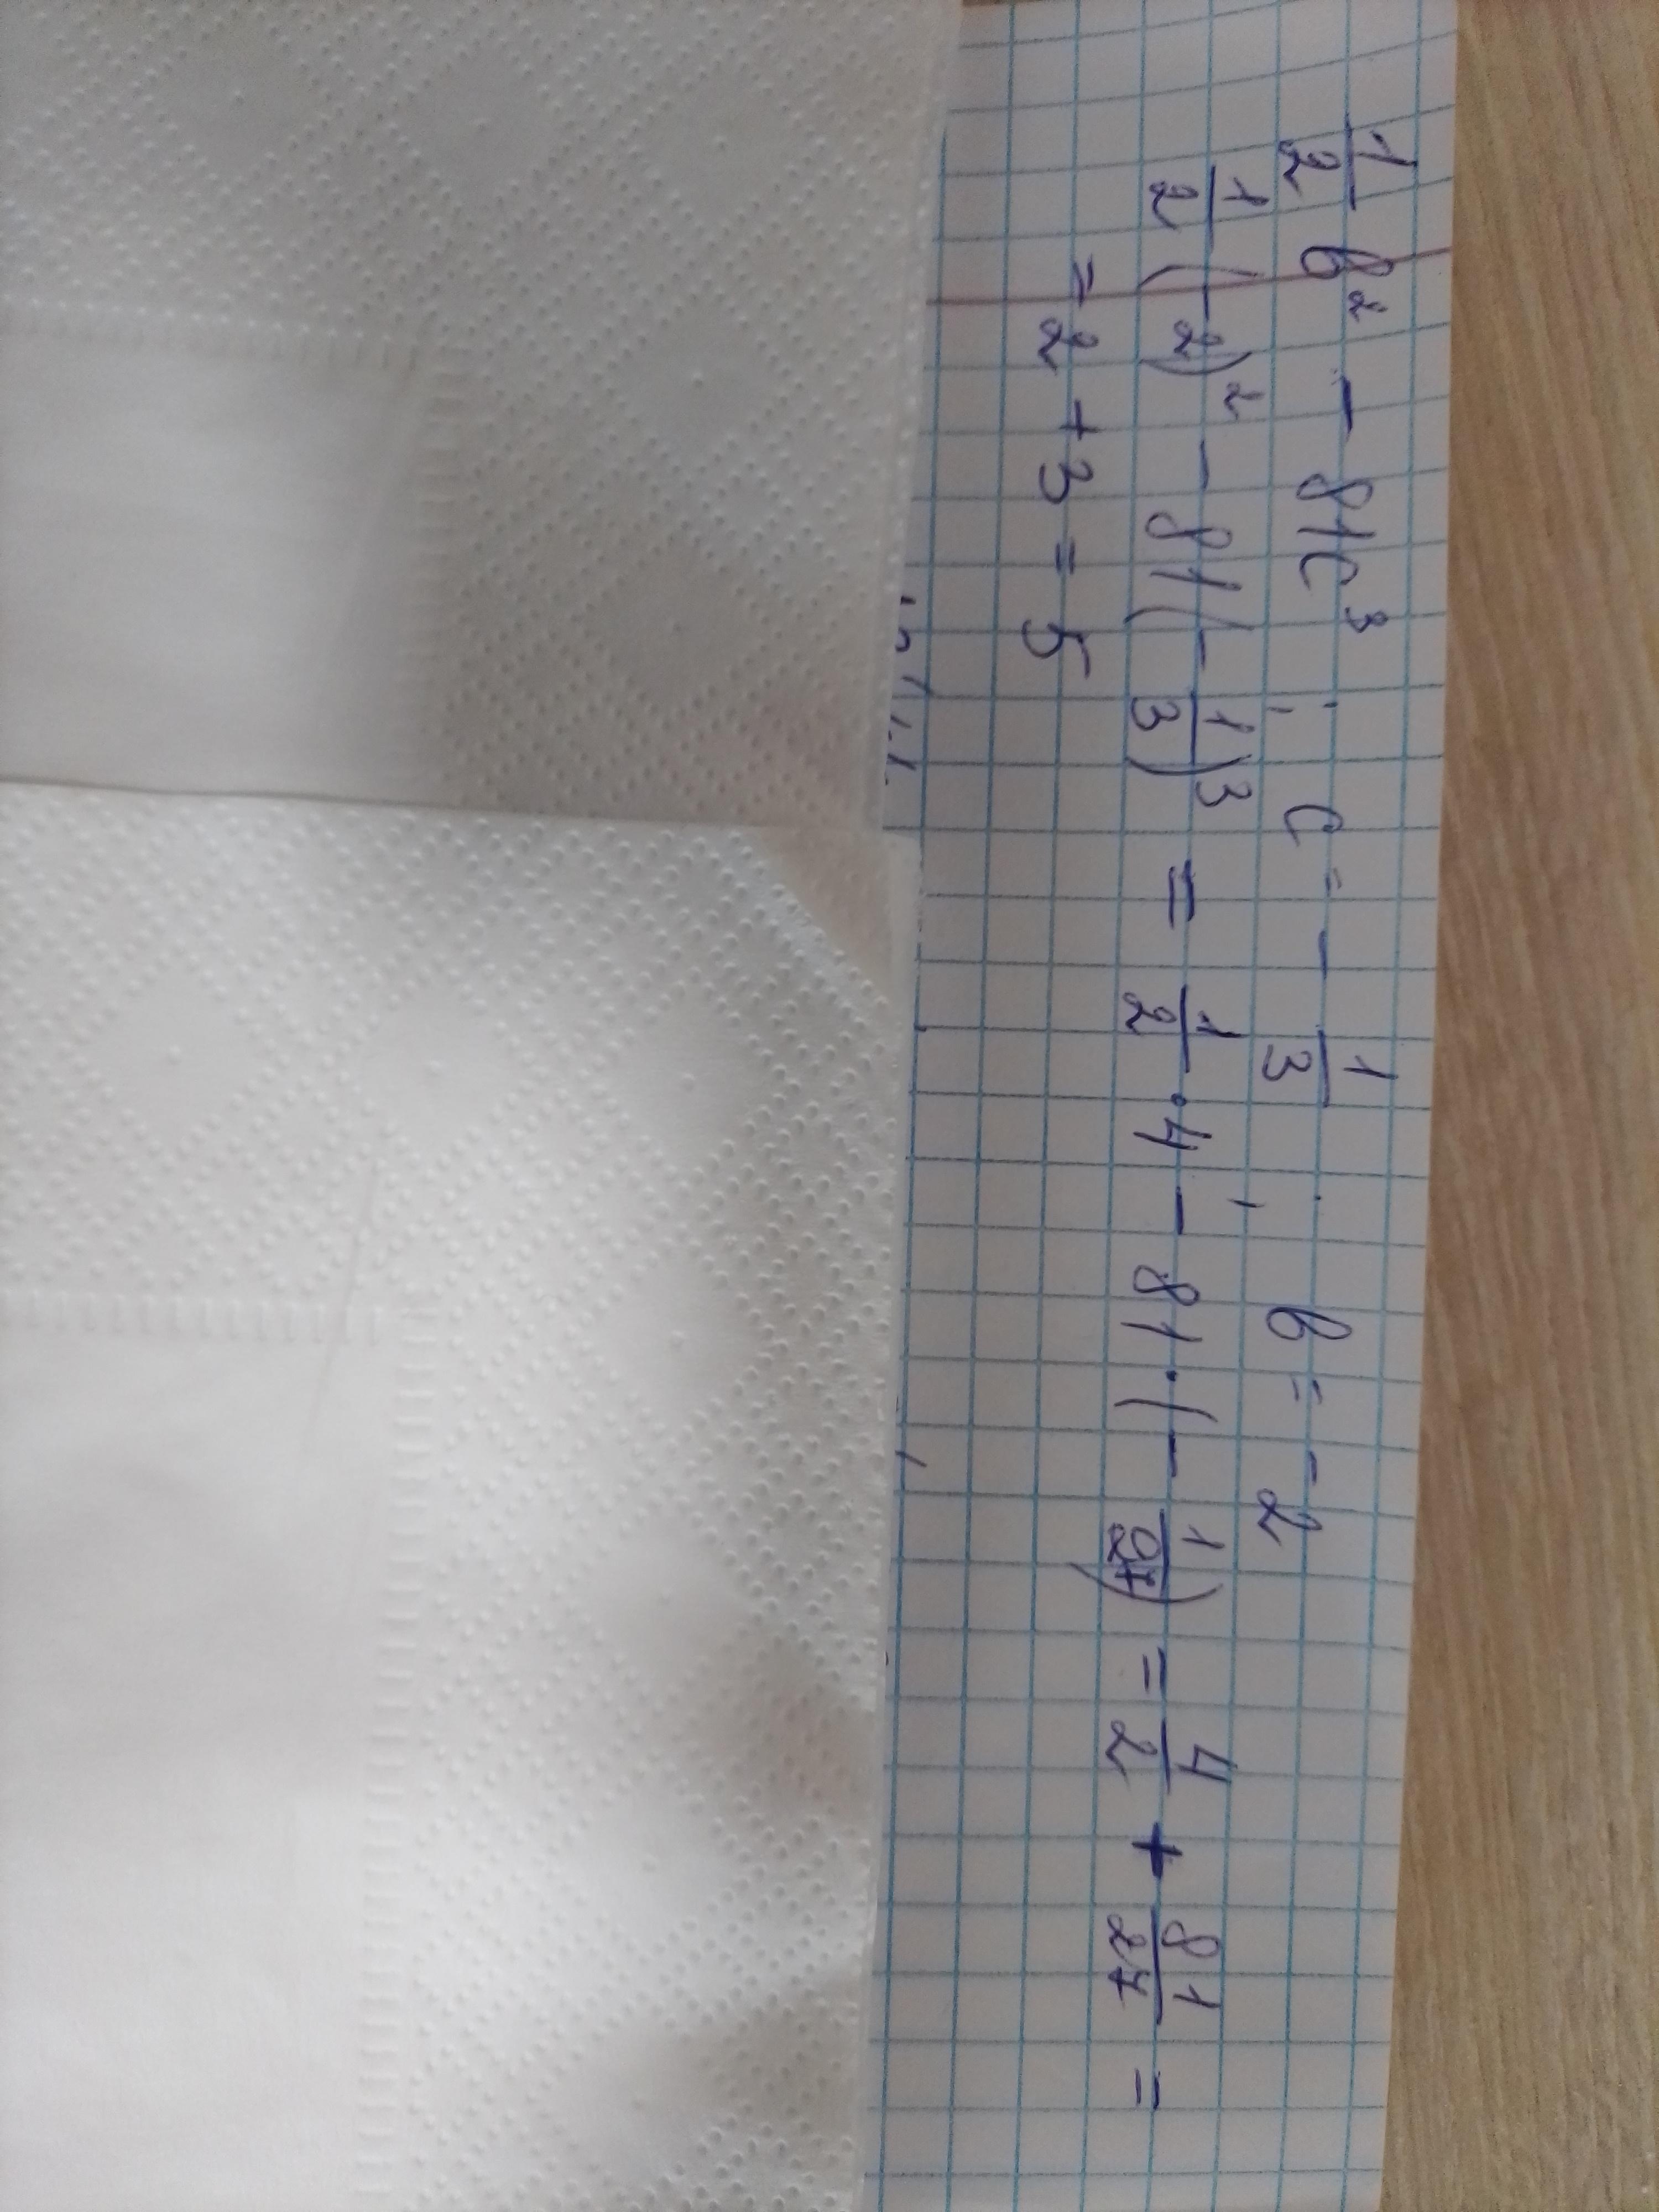 1/2 b² - 81c³ ; c = - 1/3 ; b = -2
1/2 (-2)² - 81(- 1/3)³ = 1/2 · 4 - 81 · (- 1/27) = 4/2 + 81/27 =
= 2 + 3 = 5